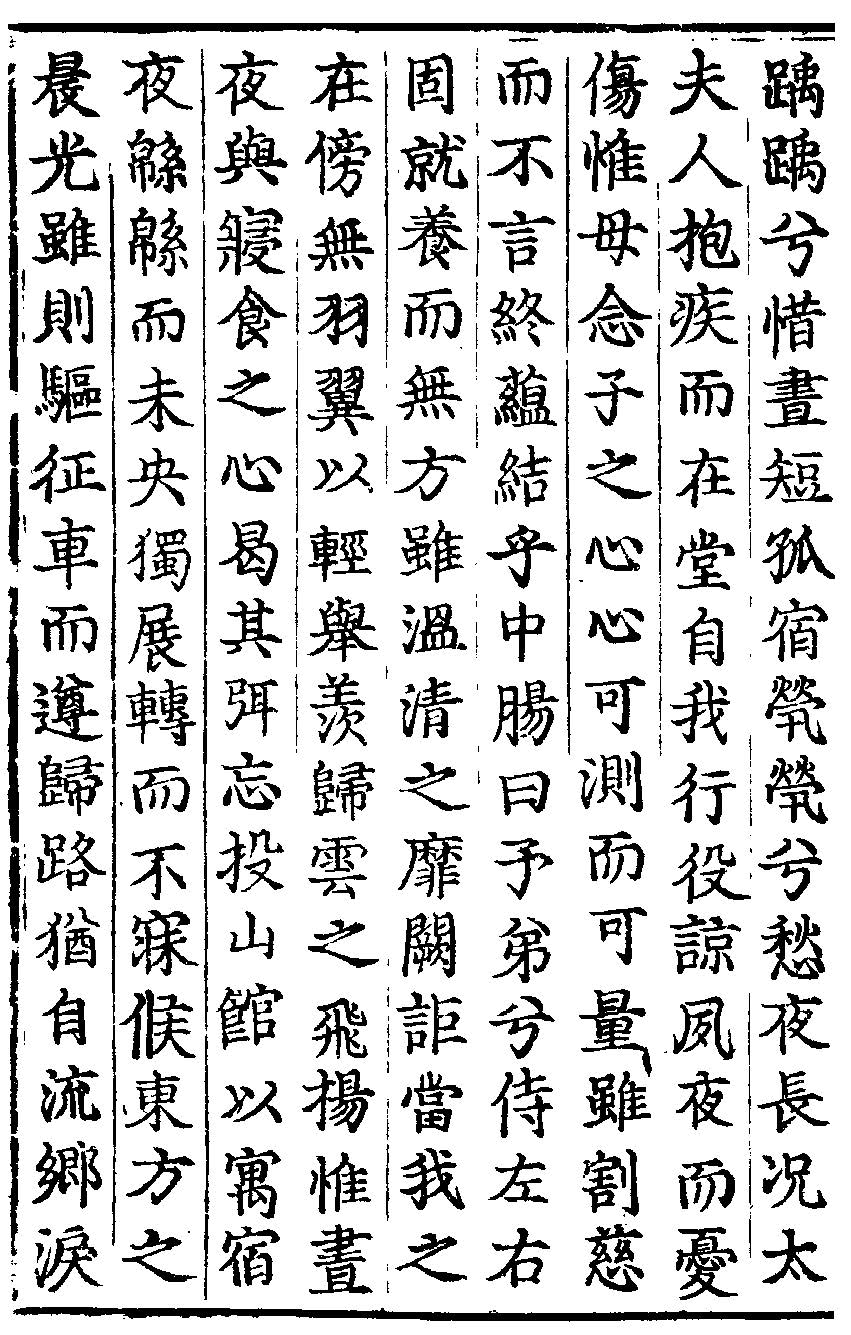 踽踽兮惜晝短孤宿煢煢兮愁夜長况太
夫人抱疾而在堂自我行役諒夙夜而憂
傷惟母念子之心心可測而可量雖割慈
而不言終蘊結乎中腸曰予弟兮侍左右
固就養而無方雖溫清之靡闕詎當我之
在傍無羽翼以輕舉羨歸雲之飛揚惟晝
夜與寢食之心曷其弭忘投山館以寓宿
夜緜緜而未央獨展轉而不寐候東方之
晨光雖則驅征車而遵歸路猶自流鄉淚